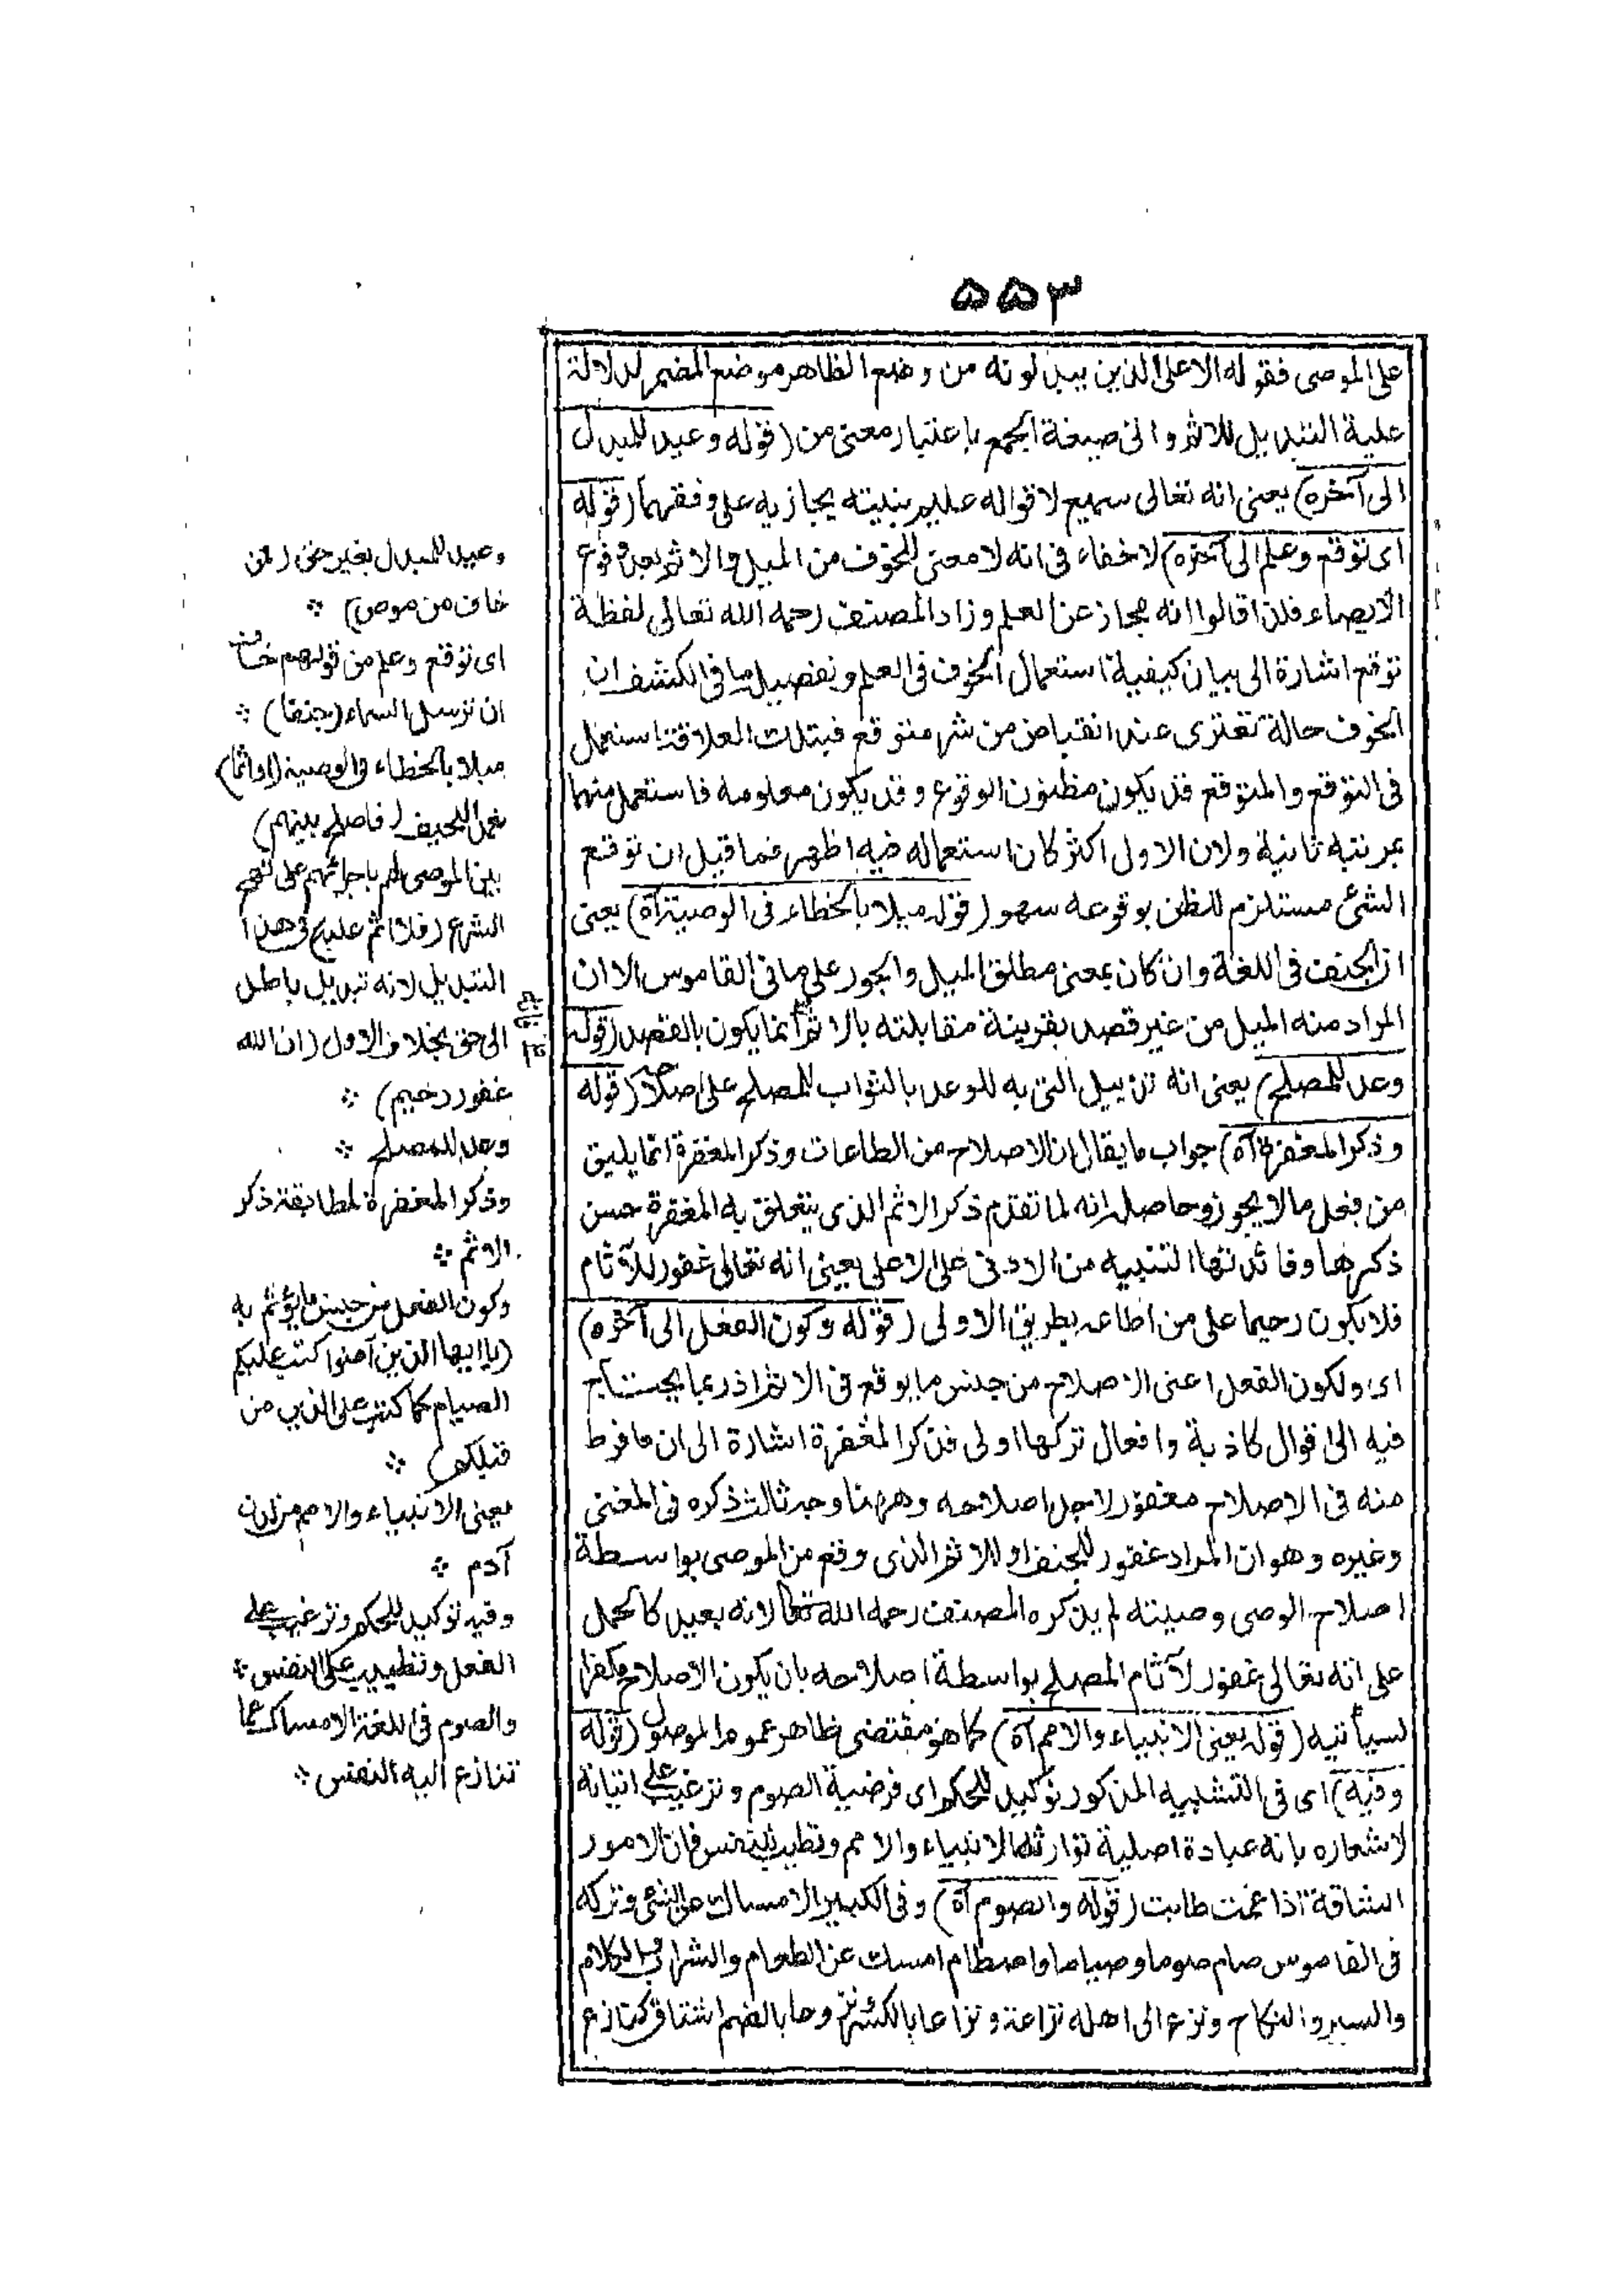 ۵۵۳
على الموصى فقوله الا على الذين يبدلونه من وضع الظاهر موضع المضمر للدلالة
علية التبديل للاثم والى صيغة الجمع باعتبار معنى من (قوله وعيد للمبدل
الى آخره) يعنى انه تعالى سميع لاقواله عليم بنيته يجازيه على وفقهما (قوله
اى توقع وعلم الى آخره) لا خفاء فى انه لا معنى للخوف من الميل والاثم بعد وقوع
الايصاء فلذا قالوا انه مجاز عن العلم وزاد المصنف رحمه الله تعالى لفظة
توقع اشارة الى بيان كيفية استعمال الخوف فى العلم وتفصيل ما فى الكشف ان
الخوف حالة تعترى عند انقباض من شر متوقع فبتلك العلاقة استعمل
فى التوقع والمتوقع قد يكون مظنون الوقوع وقد يكون معلومه فاستعمل منهما
بمرتبه ثانية ولان الاول اكثر كان استعماله فيه اظهر فما قيل ان توقع
الشئ مستلزم للظن بوقوعه سهو (قوله ميلا بالخطاء فى الوصية آه) يعنى
ان الجنف فى اللغة وان كان بمعنى مطلق الميل والجور على ما فى القاموس الا ان
المراد منه الميل من غير قصد بقرينة مقابلته بالاثم انما يكون بالقصد (قوله
وعد للمصلح) يعنى انه تذييل اتى به للوعد بالثواب للمصلح على اصلاحه (قوله
وذكر المغفرة آه) جواب ما يقال ان الاصلاح من الطاعات وذكر المغفرة انما يليق
من فعل ما لا يجوز وحاصله انه لما تقدم ذكر الاثم الذى يتعلق به المغفرة حسن
ذكرها وفائدتها التنبيه من الادنى على الاعلى يعنى انه تعالى غفور للآثام
فلا يكون رحيما على من اطاعه بطريق الاولى (قوله وكون الفعل الى آخره)
اى ولكون الفعل اعنى الاصلاح من جنس ما يوقع فى الاثم اذ ربما يحتاج
فيه الى اقوال كاذبة وافعال تركها اولى فذكر المغفرة اشارة الى ان ما فرط
منه فى الاصلاح مغفور لاجل اصلاحه وههنا وجه ثالث ذكره فى المغنى
وغيره وهو ان المراد غفور للجنف او للاثم الذى وقع من الموصى بواسطة
اصلاح الوصى وصيته لم يذكره المصنف رحمه الله تعالى لانه بعيد كالحمل
على انه تعالى غفور لآثام المصلح بواسطة اصلاحه بان يكون الاصلاح مكفرا
لسيأتيه (قوله يعنى الانبياء والامم آه) كما هو مقتضى ظاهر عموم الموصول (قوله
وفيه) اى فى التشبيه المذكور توكيد للحكم اى فرضية الصوم وترغيب على اتيانه
لاشعاره بانه عبادة اصلية توارثها الانبياء والامم وتطييب للنفس فان الامور
الشاقة اذا عمت طابت (قوله والصوم آه) وفى الكبير الامساك عن الشئ وتركه
فى القاموس صام صوما وصياما واصطام امسك عن الطعام والشراب والكلام
والسير والنكاح ونزع الى اهله نزاعة ونزاعا بالكسر ونزوعا بالضم اشتاق كنازع
وعيد للمبدل بغير حق (فمن
خاف من موص)
اى توقع وعلم من قولهم خاف
ان ترسل السماء (جنفا)
ميلا بالخطاء فى الوصية (او اثما)
تعمدا للجنف (فاصلح بينهم)
بين الموصى لهم باجرائهم على نهج
الشرع (فلا اثم عليه) فى هذا
التبديل لانه تبديل باطل
الى حق بخلاف الاول (ان الله
غفور رحيم)
وعد للمصلح
وذكر المغفرة لمطابقة ذكر
الاثم
وكون الفعل من جنس ما يؤثم به
(يا ايها الذين آمنوا كتب عليكم
الصيام كما كتب على الذين من
قبلكم)
يعنى الانبياء والامم من لدن
آدم
وفيه توكيد للحكم وترغيب على
الفعل وتطييب على النفس
والصوم فى اللغة الامساك عما
تنازع اليه النفس